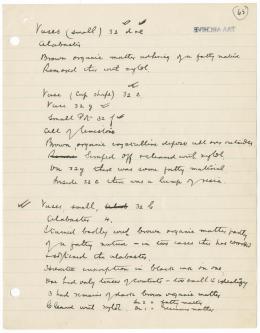 63
Vases (small) 32 d & e
Alabaster
Brown organic matter adhering of a fatty nature
Removed this with xylol
Vase (cup shape) 32 c
Vase 32 g
Small Pot 32 f
all of limestone
Brown organic crystalline deposit all over outsides
scraped off & cleaned with xylol
On 32 g there was some fatty material
Inside 32 c there was a lump of resin.
Vases small, 32 b
Alabaster 4.
Stained badly with brown organic matter partly
of a fatty nature - in two cases this has
the alabaster
inscription in black ink on one
One had only traces of contents - too small to identify
3 had remains of dark brown organic matter
Cleaned with xylol